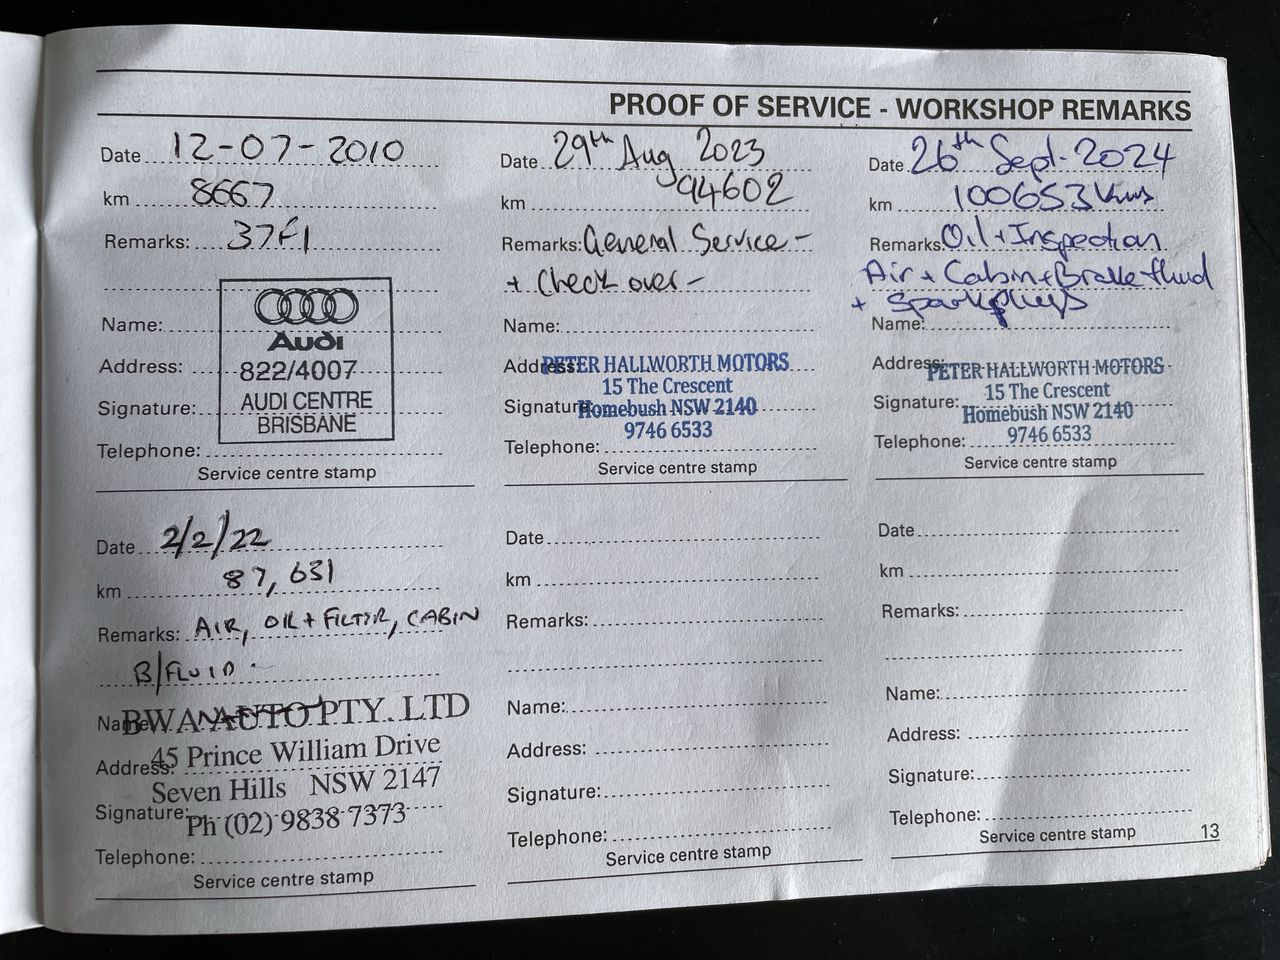 PROOF OF SERVICE - WORKSHOP REMARKS
Date 12-07-2010
km 8667
Remarks: 37F1
Name:
Address:
Signature:
Telephone:
Audi
822/4007
AUDI CENTRE
BRISBANE
Service centre stamp
Date 2/2/22
km 87,631
Remarks: AIR, OIL + FILTER, CABIN
B/FLUID -
Name:
BWA AUTO PTY. LTD
Address:
45 Prince William Drive
Seven Hills NSW 2147
Signature:
Ph (02) 9838 7373
Telephone:
Service centre stamp
Date 29th Aug 2023
km 94602
Remarks: General Service -
+ Check over -
Name:
Address:
PETER HALLWORTH MOTORS
15 The Crescent
Signature:
Homebush NSW 2140
9746 6533
Telephone:
Service centre stamp
Date
km
Remarks:
Name:
Address:
Signature:
Telephone:
Service centre stamp
Date 26th Sept. 2024
km 100653 kms
Remarks: Oil + Inspection
Air + Cabin + Brake fluid
+ Sparkplugs
Name:
Address:
PETER HALLWORTH MOTORS
15 The Crescent
Signature:
Homebush NSW 2140
Telephone:
9746 6533
Service centre stamp
Date
km
Remarks:
Name:
Address:
Signature:
Telephone:
Service centre stamp
13